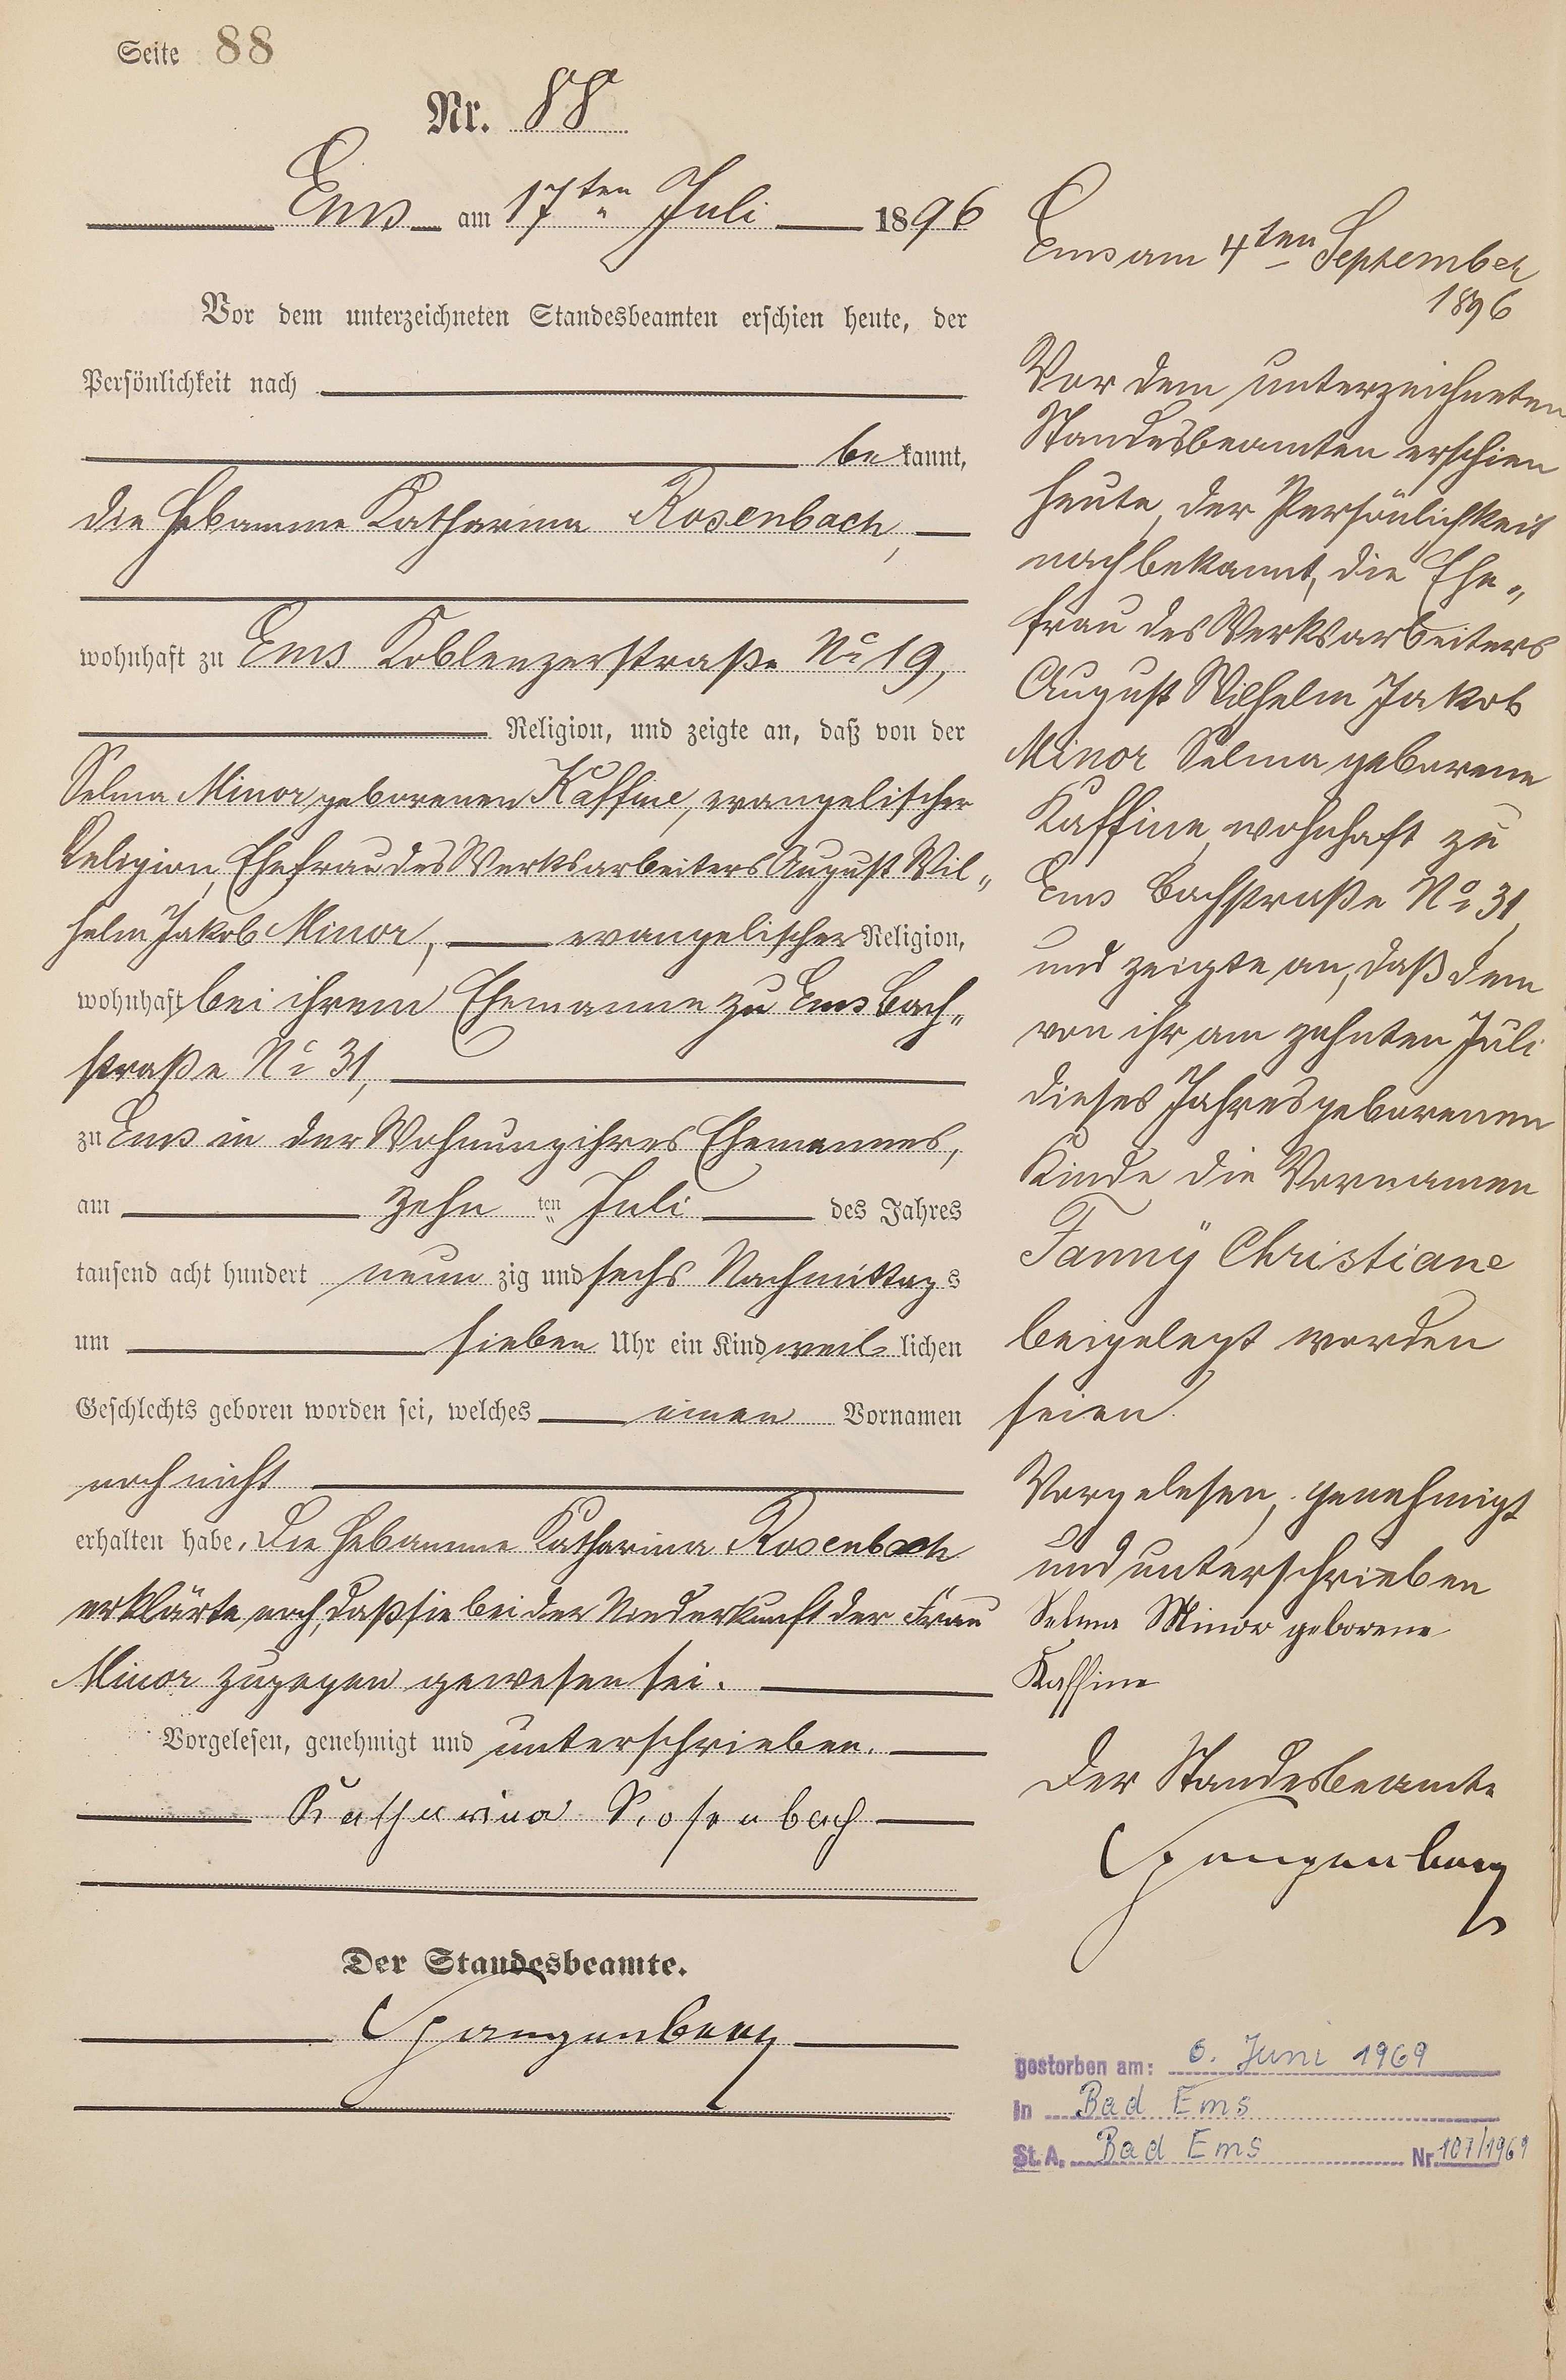 Seite 88
Nr. 88
Ems am 17ten Juli 1896
Vor dem unterzeichneten Standesbeamten erschien heute, der
Persönlichkeit nach
bekannt,
die Hebamme Katharina Rosenbach,
wohnhaft zu Ems Koblenzerstraße No 19,
Religion, und zeigte an, daß von der
Selma Minor geborenen Kaffine, evangelischer
Religion, Ehefrau des Werksarbeiters August Wil„
helm Jakob Minor, evangelischer Religion,
wohnhaft bei ihrem Ehemanne zu Ems Bach„
straße No 31,
zu Ems in der Wohnung ihres Ehemannes,
am zehn ten Juli des Jahres
tausend acht hundert neun zig und sechs Nachmittags
um sieben Uhr ein Kind weib lichen
Geschlechts geboren worden sei, welches einen Vornamen
noch nicht
erhalten habe. Die Hebamme Katharina Rosenbach
erklärte noch, daß sie bei der Niederkunft der Frau
Minor zugegen gewesen sei.
Vorgelesen, genehmigt und unterschrieben.
Katharina Rosenbach
Der Standesbeamte.
Spangenberg
Ems am 4ten September
1896
Vor dem unterzeichneten
Standesbeamten erschien
heute, der Persönlichkeit
nach bekannt, die Ehe„
frau des Werksarbeiters
August Wilhelm Jakob
Minor Selma geborene
Kaffine, wohnhaft zu
Ems Bachstraße No 31,
und zeigte an, daß dem
von ihr am zehnten Juli
dieses Jahres geborenen
Kinde die Vornamen
Fannÿ Christiane
beigelegt worden
seien.
Vorgelesen, genehmigt
und unterschrieben
Selma Minor geborene
Kaffine
Der Standesbeamte
Spangenberg
gestorben am: 6. Juni 1969
in Bad Ems
St. A. Bad Ems Nr. 107/1969